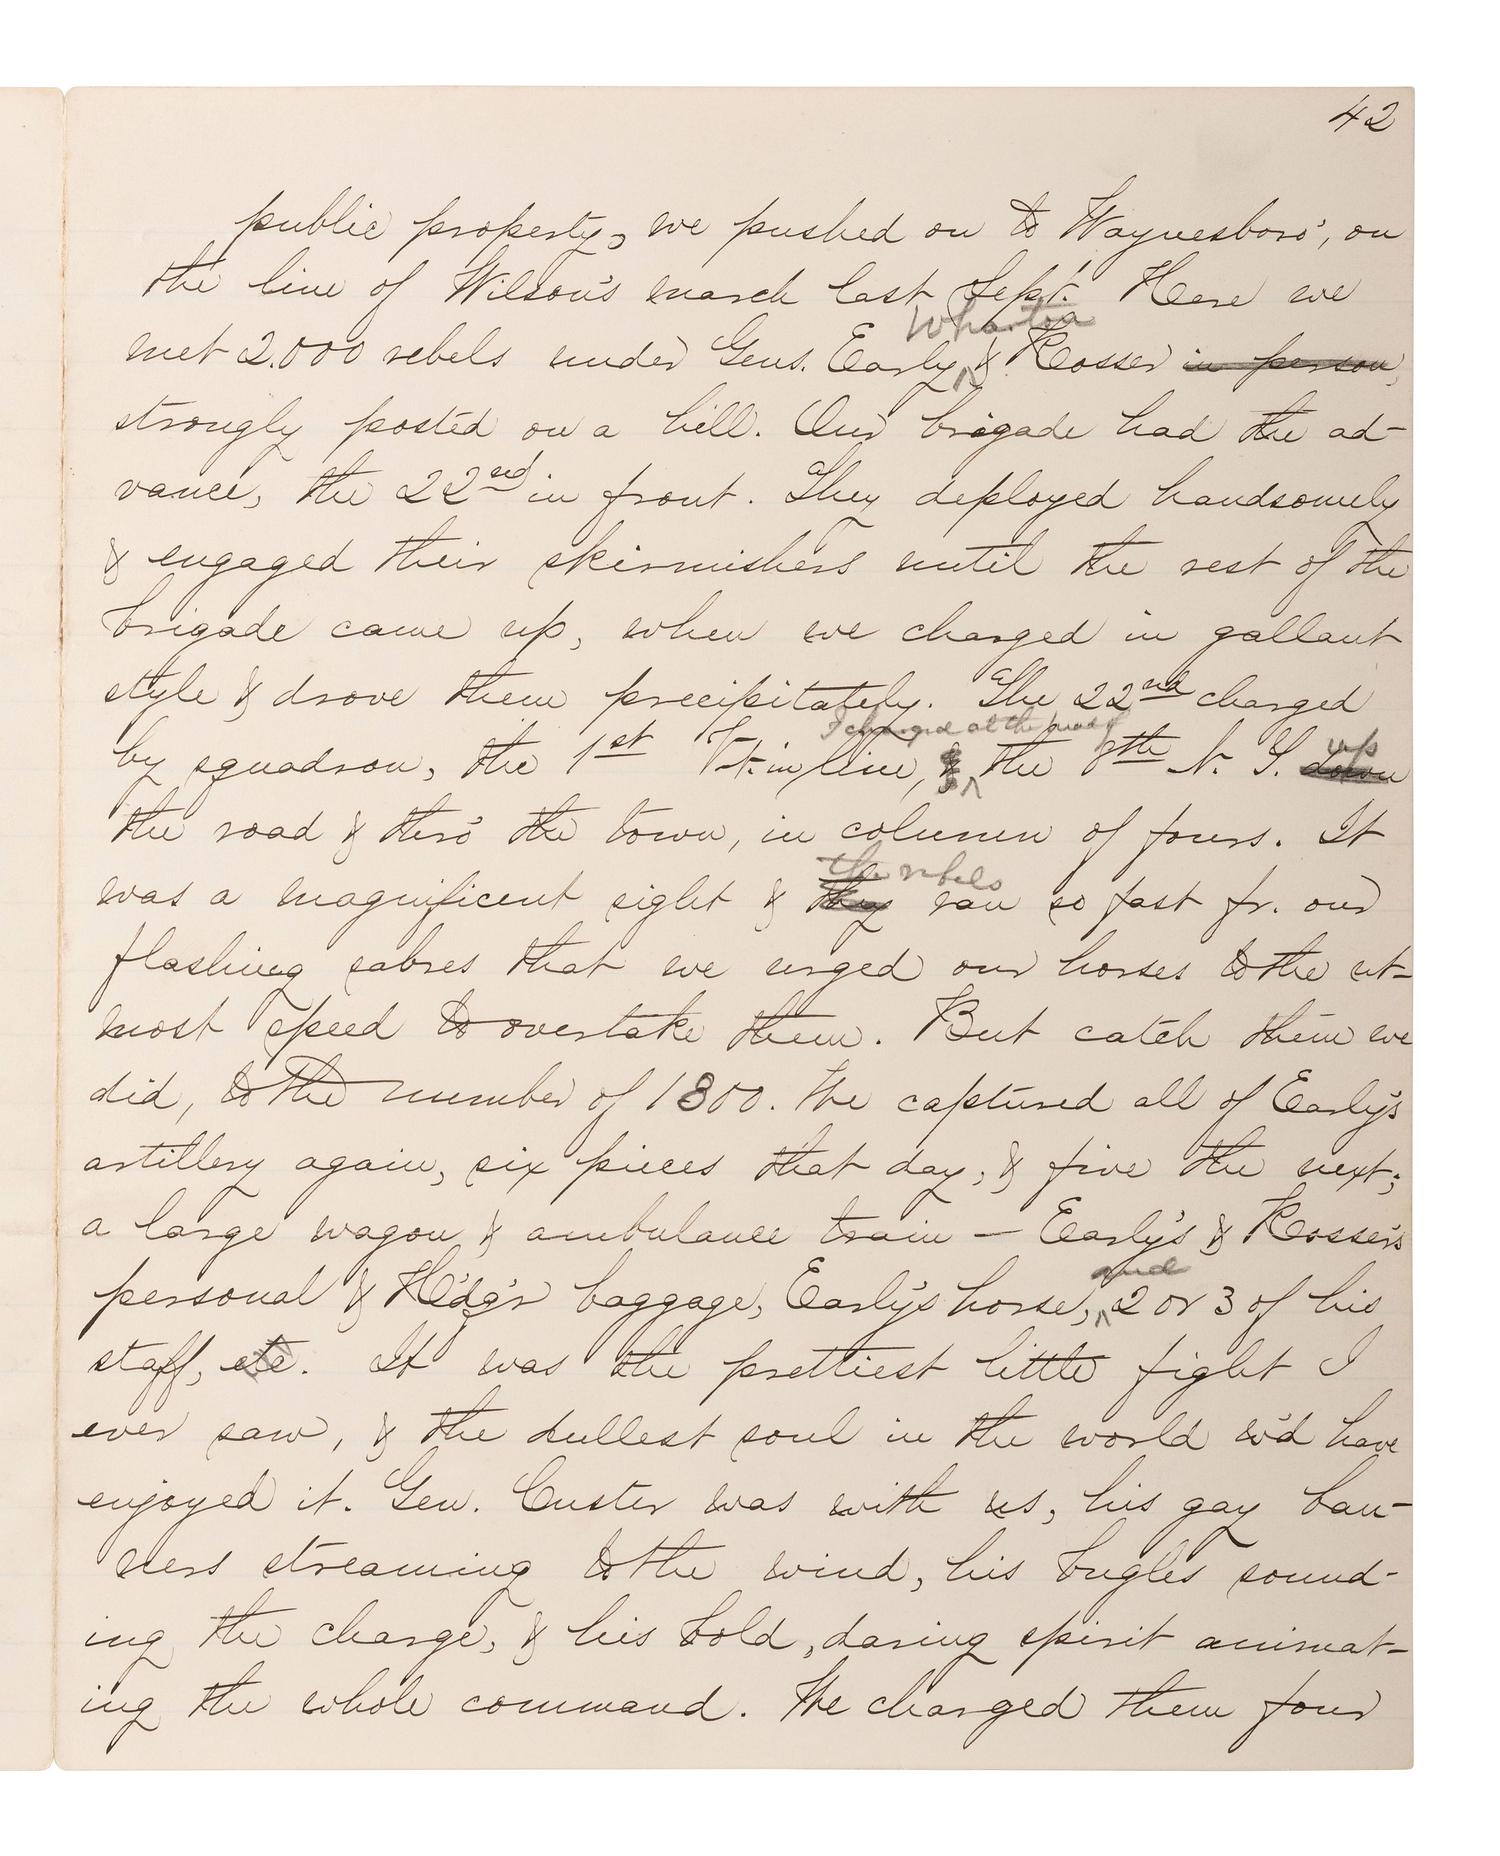 42
public property, we pushed on to Waynesboro', on
the line of Wilson's march last Sept. Here we
Wharton
met 2.000 rebels under Gens. Early & Rosser in person,
strongly posted on a hill. Our brigade had the ad-
vance, the 22nd in front. They deployed handsomely
& engaged their skirmishers until the rest of the
brigade came up, when we charged in gallant
style & drove them precipitately. The 22nd charged
I charged at the head of
by squadron, the 1st Vt. in line, & the 8th N. Y. down
up
the road & thro' the town, in column of fours. It
the rebels
was a magnificent sight & they ran so fast fr. our
flashing sabres that we urged our horses to the ut-
most speed to overtake them. But catch them we
did, to the number of 1800. We captured all of Early's
artillery again, six pieces that day, & five the next;
a large wagon & ambulance train — Early's & Rosser's
and
personal & H'dq'r baggage, Early's horse, 2 or 3 of his
staff, etc. It was the prettiest little fight I
ever saw, & the dullest soul in the world w'd have
enjoyed it. Gen. Custer was with us, his gay ban-
ners streaming to the wind, his bugles sound-
ing the charge, & his bold, daring spirit animat-
ing the whole command. We charged them four